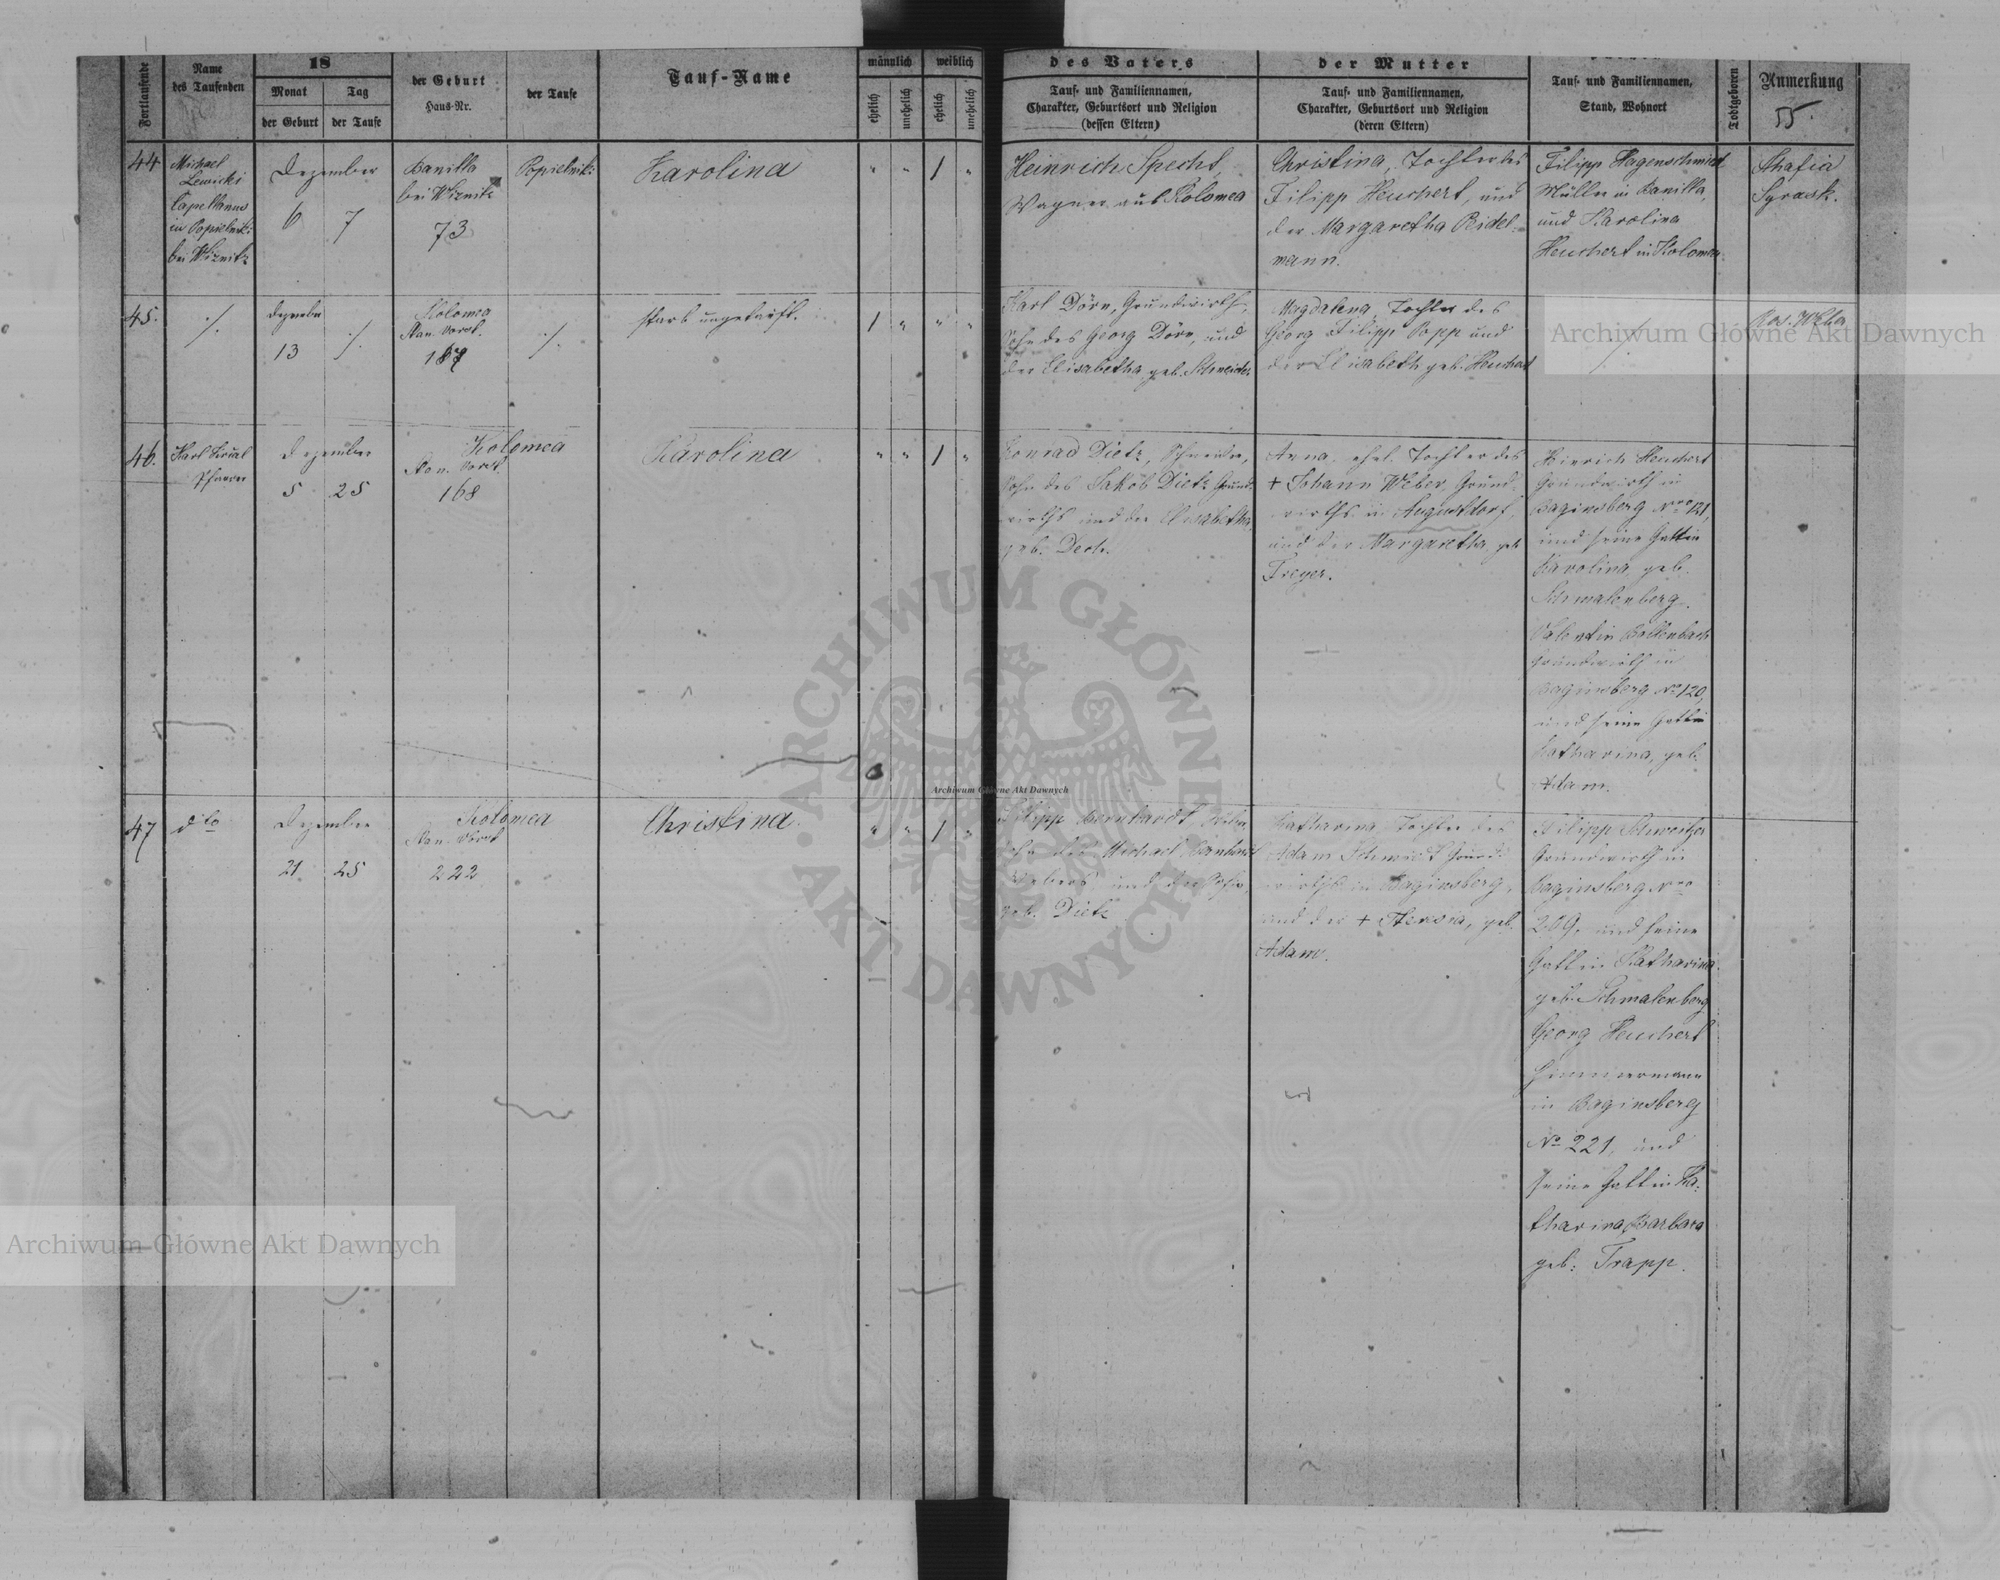 Fortlaufende
Name
des Taufenden
18
Monat
Tag
der Geburt
der Taufe
der Geburt
Haus-Nr.
der Taufe
Tauf-Name
männlich
weiblich
ehelich
unehelich
ehelich
unehelich
des Vaters
Tauf- und Familiennamen,
Charakter, Geburtsort und Religion
(dessen Eltern)
der Mutter
Tauf- und Familiennamen,
Charakter, Geburtsort und Religion
(deren Eltern)
Tauf- und Familiennamen,
Stand, Wohnort
Todtgeboren
Anmerkung
55.
44
Michael
Lewicki
Capellanus
in Popielnik:
bei Wiznitz
Dezember
6
7
Banilla
bei Wiznitz
73
Popielnik:
Karolina
" " 1 "
Heinrich Specht,
Wagner aus Kolomea
Christina, Tochter des
Filipp Heuchert, und
der Margaretha Ridel-
mann.
Filipp Hagenschmidt
Müller in Banilla,
und Karolina
Heuchert in Kolomea
45.
./.
Dezember
13
./.
Kolomea
Stan. Vorst.
187
./.
starb ungetauft.
1 " " "
Karl Dörr, Grundwirth,
Sohn des Georg Dörr, und
der Elisabetha geb. Schneider
Magdalena, Tochter des
Georg Filipp Repp und
der Elisabeth geb. Heuchert
46.
Karl
Pfarrer
Dezember
5
25
Kolomea
Stan. Vorst.
168
Karolina
" " 1 "
Konrad Dietz, Schneider,
Sohn des Jakob Dietz Grund-
wirths und der Elisabetha,
geb. Dech.
Anna, ehel. Tochter des
+ Johann Weber, Grund-
wirths in Augustdorf,
und der Margaretha, geb.
Freyer.
Hinrich Heuchert
Grundwirth in
Baginsberg Nro 121,
und seine Gattin
Karolina, geb.
Schmalenberg.
Valentin Bollenbach
Grundwirth in
Baginsberg No 120,
und seine Gattin
Katharina, geb.
Adam.
47
dto
Dezember
21
25
Kolomea
Stan. Vorst
222
Christina.
" " 1 "
Filipp Bernhardt, Weber,
Sohn des Michael Bernhardt
Webers, und der Sofia,
geb. Dietz
Katharina, Tochter des
Adam Schmidt Grund-
wirths in Baginsberg,
und der + Theresia, geb.
Adam.
Filipp Schweitzer
Grundwirth in
Baginsberg Nro
209. und seine
Gattin Katharina
geb. Schmalenberg
Georg Heuchert
Zimmermann
in Baginsberg
No 221, und
seine Gattin Ka-
tharina Barbara
geb: Trapp.
Archiwum Główne Akt Dawnych
ARCHIWUM GŁÓWNE
AKT DAWNYCH
Archiwum Główne Akt Dawnych
Archiwum Główne Akt Dawnych